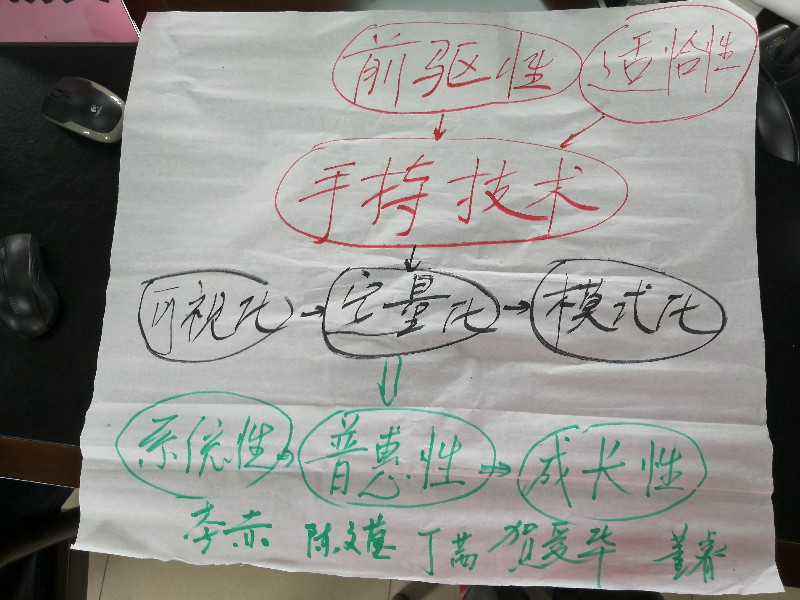 前驱性 适恰性
手持技术
可视化 定量化 模式化
系统性 普惠性 成长性
李赤 陈文慧 丁茜 贺爱华 董睿